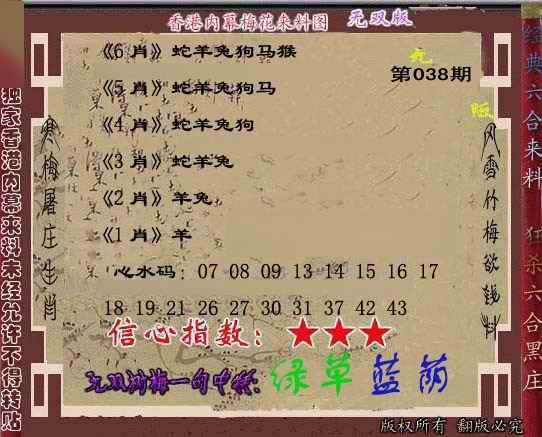 香港内幕梅花来料图 无双版
《6 肖》蛇羊兔狗马猴
无
第038期
《5 肖》蛇羊兔狗马
版
《4 肖》蛇羊兔狗
《3 肖》蛇羊兔
《2 肖》羊兔
《1 肖》羊
心水码：07 08 09 13 14 15 16 17
18 19 21 26 27 30 31 37 42 43
信心指数：★★★
无双浏梅一句中特：绿草蓝荫
独家香港内幕来料未经允许不得转贴
寒梅屠庄生肖
风雪竹梅欲钱料
经典六合来料
狂杀六合黑庄
版权所有 翻版必究